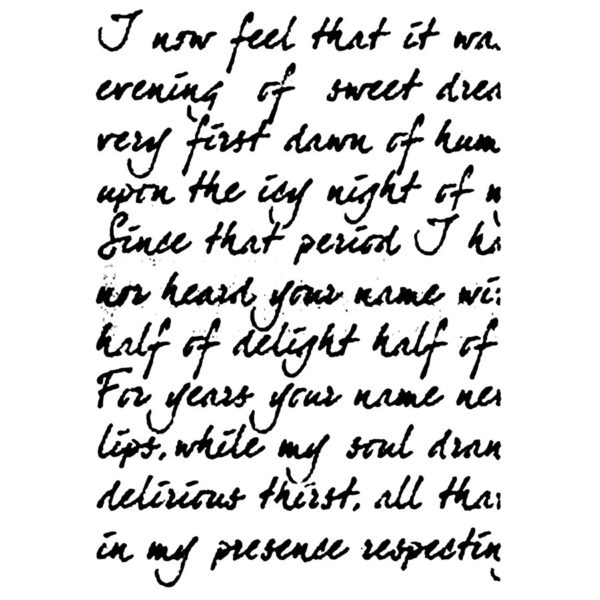 I now feel that it wa
evening of sweet drea
very first dawn of hum
upon the icy night of
Since that period I ha
nor heard your name wi
half of delight half of
For years your name ne
lips, while my soul dran
delirious thirst, all tha
in my presence respectin